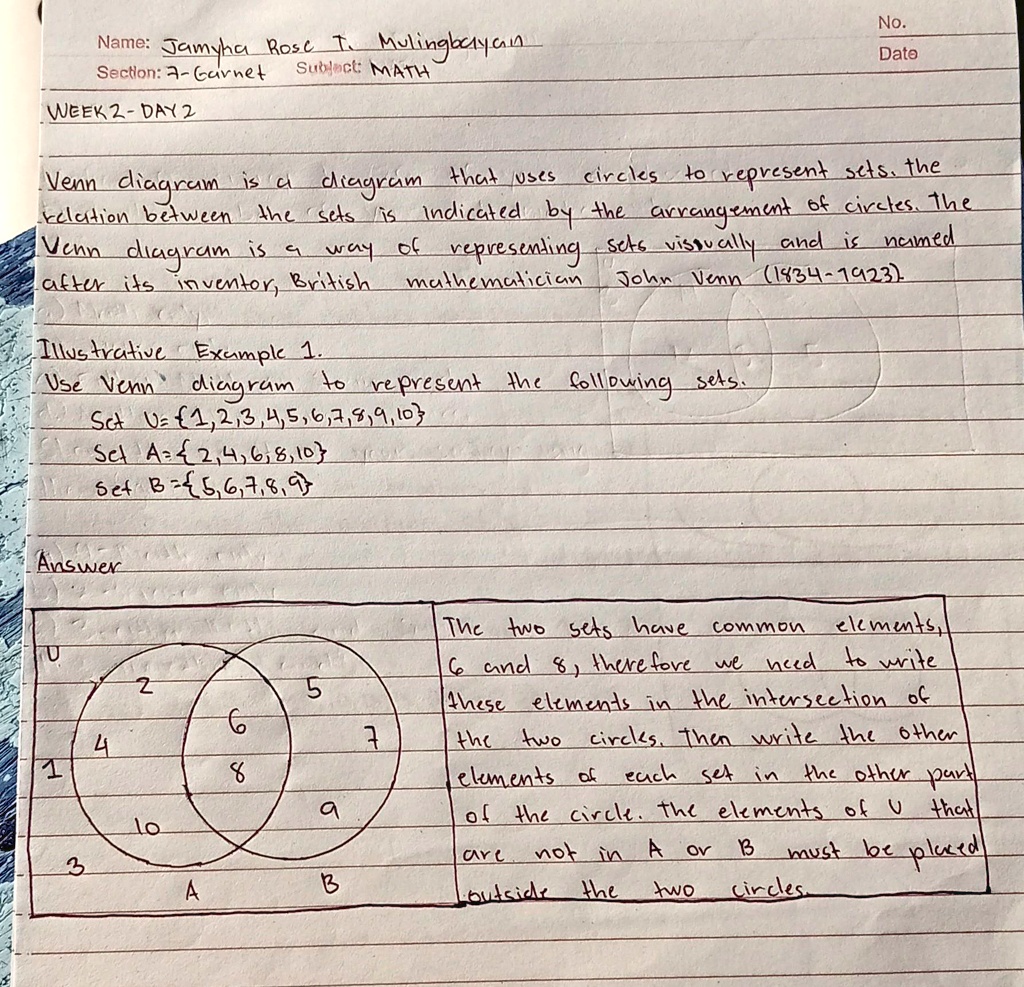 No.
Name: Jamyha Rose T. Mulingbayan
Date
Section: 7-Garnet Subject: MATH
WEEK 2 - DAY 2
Venn diagram is a diagram that uses circles to represent sets. The
relation between the sets is indicated by the arrangement of circles. The
Venn diagram is a way of representing sets visually and is named
after its inventor, British mathematician John Venn (1834-1923).
Illustrative Example 1.
Use Venn diagram to represent the following sets.
Set U={1,2,3,4,5,6,7,8,9,10}
Set A={2,4,6,8,10}
Set B={5,6,7,8,9}
Answer
U
2
5
6
7
4
8
1
9
10
3
A
B
The two sets have common elements,
6 and 8, therefore we need to write
these elements in the intersection of
the two circles. Then write the other
elements of each set in the other part
of the circle. The elements of U that
are not in A or B must be placed
outside the two circles.